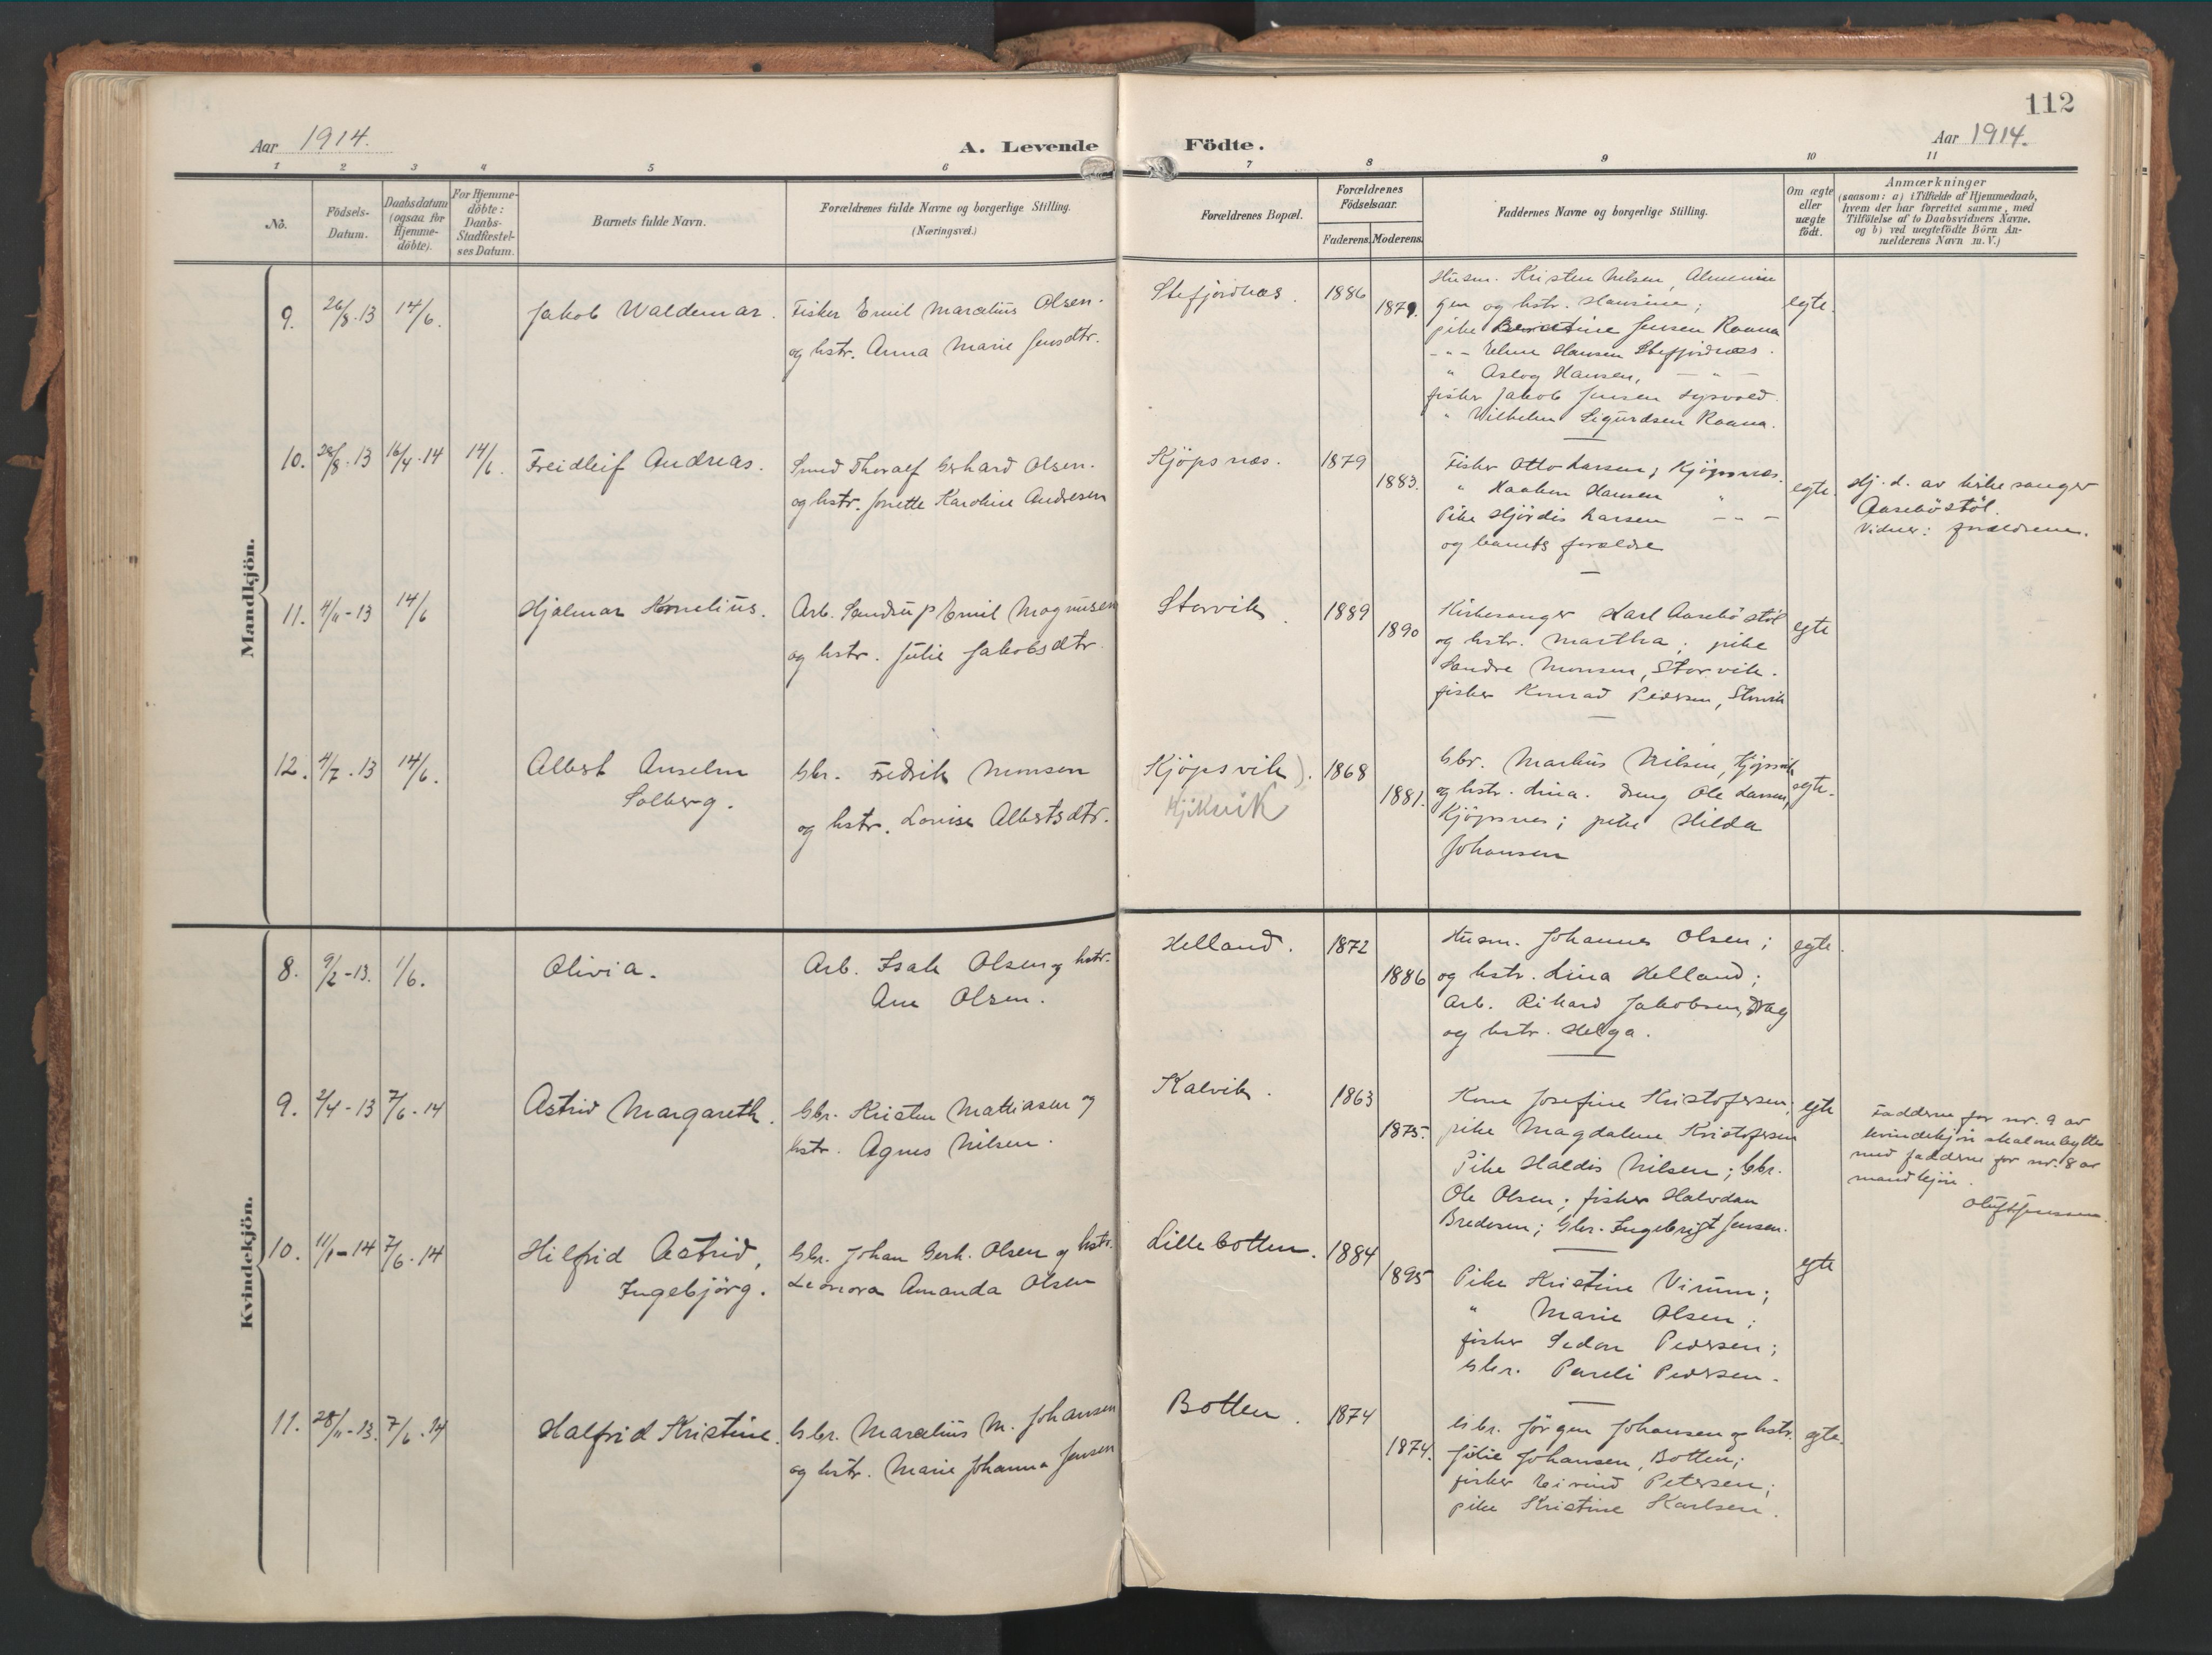 112
Aar 1914.
A. Levende Födte.
Aar 1914.
1 2 3 4 5 6 7 8 9 10 11
No.
Födsels-
Datum.
Daabsdatum
(ogsaa for
Hjemme-
döbte).
For Hjemme-
döbte:
Daabs-
Stadfæstel-
ses Datum.
Barnets fulde Navn.
Forældrenes fulde Navne og borgerlige Stilling.
(Næringsvei.)
Forældrenes Bopæl.
Forældrenes
Födselsaar.
Faderens. Moderens.
Faddernes Navne og borgerlige Stilling.
Om ægte
eller
uægte
födt.
Anmærkninger
(saasom: a) i Tilfælde af Hjemmedaab,
hvem der har forrettet samme, med
Tilföielse af to Daabsvidners Navne.
og b) ved uægtefödte Börn An-
melderens Navn m. V.)
Mandkjön.
9. 26/8-13 14/6. Jakob Waldemar. Fisker Emil Marcelius Olsen.
og hstr. Anna Marie Jensdtr.
Stefjordnæs. 1886 1879.
Husm. Kristen Nilsen,
gen og hstr. Hansine;
pike Jensen Raana
-"- Hansen Stefjordnæs.
" Aslog Hansen, - " -
fisker Jakob Jensen
" Wilhelm Sigurdsen Raana.
egte.
10. 28/8-13 16/4-14 14/6. Freidleif Andreas. Smed Thoralf Gerhard Olsen.
og hstr. Jonette Karoline Andresen
Kjöpsnæs. 1879 1883.
Fisker Otto Larsen; Kjöpsnæs.
" Haakon Hansen "
Pike Hjördis Larsen - " -
og barnets forældre
egte.
Hj. d. av kirkesanger
Aaseböstöl.
Vidner: forældrene.
11. 4/11-13 14/6 Hjalmar Kornelius. Arb. Sandrup Emil Magnusen
og hstr. Julie Jakobsdtr.
Storvik. 1889 1890
Kirkesanger Karl Aaseböstöl
og hstr. Martha; pike
Sandra Monsen, Storvik.
fisker Konrad Pedersen, Storvik
egte
12. 4/7-13 14/6. Albert Anselm
Solberg.
Gbr. Fredrik Monsen
og hstr. Lovise Albertsdtr.
Kjöpsvik).
Hjikvik
1868 1881.
Gbr. Markus Nilsen, Kjöpsvik
og hstr. Lina. Dreng Ole Larsen,
Kjöpsnes; pike Hilda
Johansen
egte.
Kvindekjön.
8. 9/2-13. 1/6. Olivia. Arb. Isak Olsen og hstr.
Ane Olsen.
Helland. 1872 1886
Husm. Johannes Olsen;
og hstr. Lina Helland;
Arb. Rikard Jakobsen, Drag
og hstr. Helga.
egte.
9. 2/4-13 7/6-14 Astrid Margareth. Gbr. Kristen Mathiasen og
hstr. Agnes Nilsen.
Kalvik. 1863 1875.
Kone Josefine Kristofersen;
pike Magdalene Kristofersen
Pike Haldis Nilsen; Gbr.
Ole Olsen; fisker Halvdan
Bredesen; Gbr. Ingebrigt Jensen.
egte
Fadderne for nr. 9 av
kvindekjön skal ombyttes
med fadderne for nr. 8 av
mandkjön.
10. 11/1-14 7/6-14 Hilfrid Astrid,
Ingebjörg.
Gbr. Johan Gerh. Olsen og hstr.
Leonora Amanda Olsen
Lillebotten. 1884 1895
Pike Kristine Virum;
" Marie Olsen;
fisker Sedon Pedersen;
Gbr. Pareli Pedersen.
egte
11. 28/11-13. 7/6-14 Halfrid Kristine. Gbr. Marcelius M. Johansen
og hstr. Marie Johanna Jensen
Botten. 1874 1874.
Gbr. Jörgen Johansen og hstr.
Julie Johansen, Botten;
fisker Eivind Petersen;
pike Kristine Karlsen.
egte.